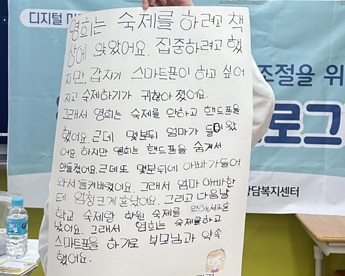 디지털
영희는 숙제를 하려고 책
상에 앉았어요. 집중하려고 했
지만, 갑자기 스마트폰이 하고 싶어
지고 숙제하기가 귀찮아 졌어요.
그래서 영희는 숙제를 안하고 핸드폰을
했어요. 근데 몇분뒤 엄마가 들어왔
어요 하지만 영희는 핸드폰을 숨겨서
안들켰어요. 근데도 몇분뒤에 아빠가 들어
와서 들켜버렸어요. 그래서 엄마 아빠한
테 엄청크게 혼났어요. 그리고 다음날
학교 숙제랑 학원 숙제를
났어요. 그래서 영희는 숙제를하고
스마트폰을 하기로 부모님과 약속
했어요.
조절을 위
로그
상담복지센터